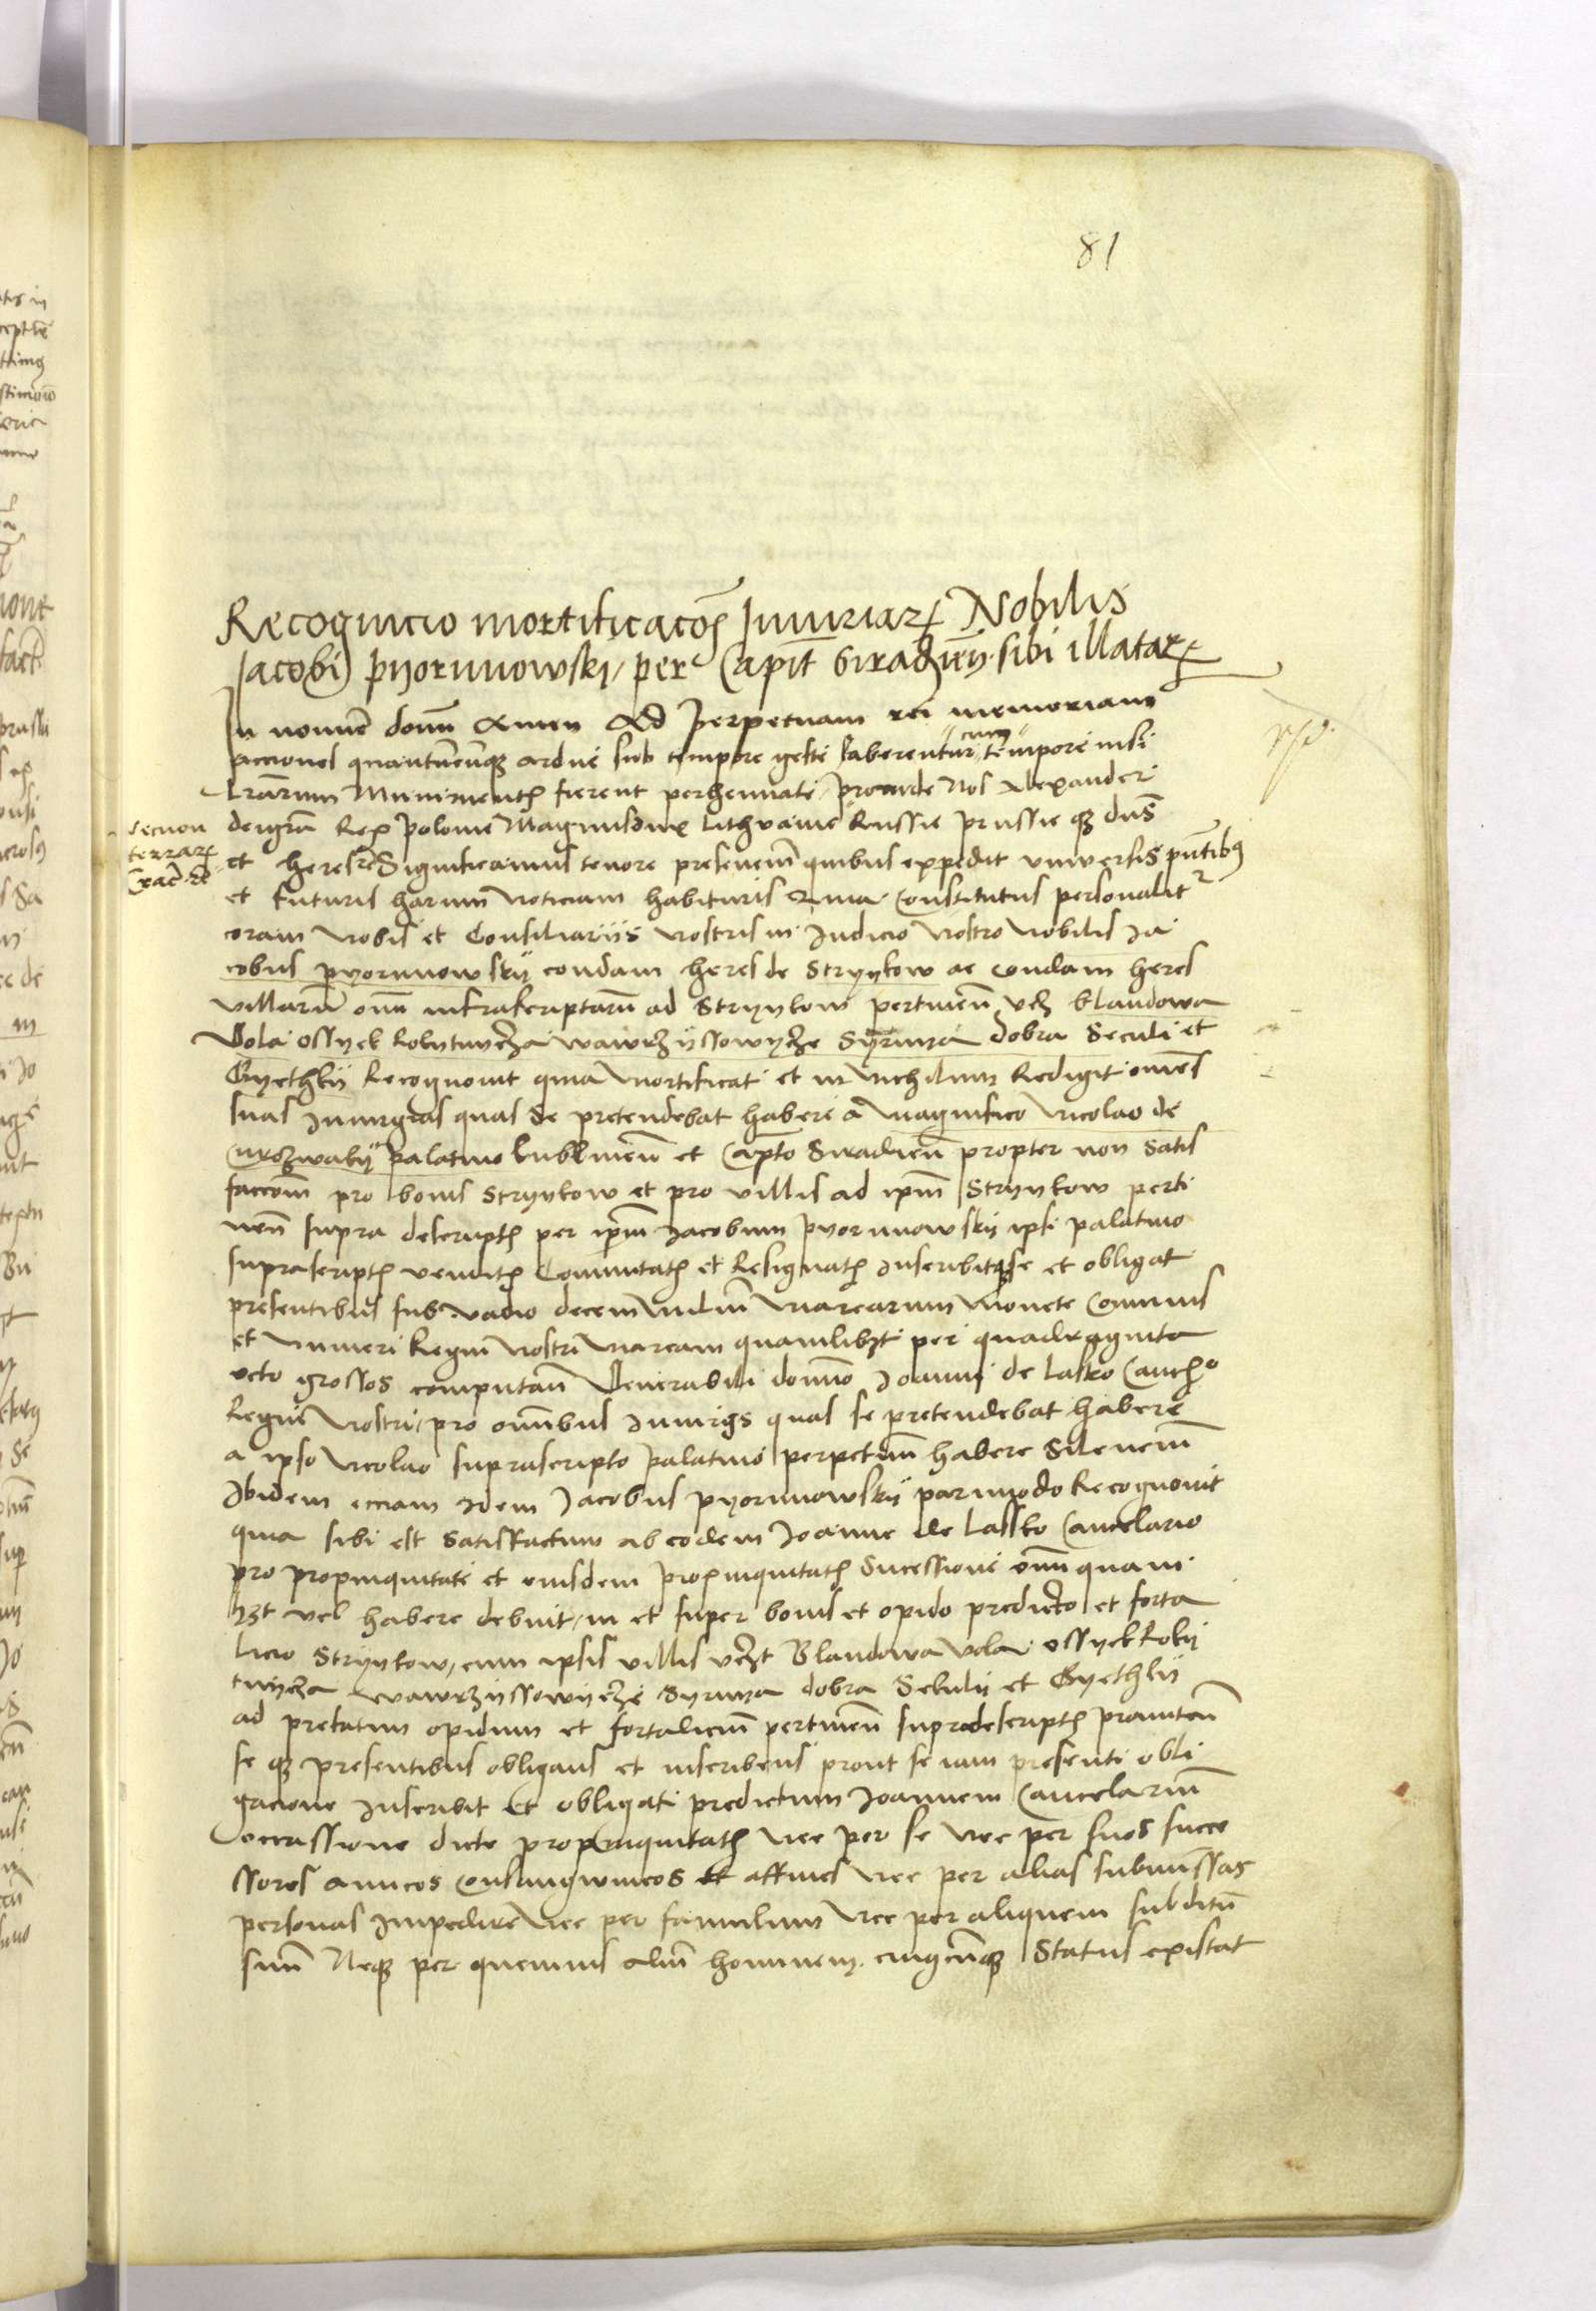 81
Recognicio mortificacõs Iniuriarꝝ Nobilis
Jacobi pyorunowski, per Capit̃ Siradien̄. sibi illatarꝝ
In nomine domĩ Amen Ad perpetuam rei memoriam
acciones quantũcunqꝫ ardue sub tempore geste laberentur cum tempore nisi
Lrãrum Munimentis fierent perhennate, proinde Nos Alexander
dei grã Rex polonie Magnusdux Lithvanie Russie prussie qꝫ dñs
Necnon
terrarꝝ
Crac̃. etc
et heres etc Significamus tenore presencium quibus expedit vniversis pñtibꝫ
et futuris harum noticiam habituris Quia Constitutus personalit̃
coram nobis et Consiliariis nostris in Iudicio nostro nobilis Ja
cobus pyorunowskij condam heres de Strynkow ac condam heres
villarũ om̃ infrascriptarũ ad Strynkow pertinen̄ vcꝫ blandowa
Vola Ossyek wawrzyssowycze dobra Seculi et
Gyethlij Recognovit quia mortificat et in nichilum Redigit omẽs
suas iniurias quas se pretendebat habere a Magnifico Nicolao de
Curozwaky palatino Lublinen̄ et Capto Siradien̄ propter non satis
faccõm pro bonis Strynkow et pro villis ad ipm̃ Strynkow perti
nen̄ supra descriptis per ipm̃ Jacobum pyorunowskij ipsi palatino
suprascriptis venditis Commutatis et Resignatis inscribitqꝫ se et obligat
presentibus sub vadio decem milium marcarum monete Commus
et numeri Regni nostri marcam quamlibꝫt per quadraginta
octo grossos computan̄ Venerabili domino Joanni de Lasko Canc̃o
Regni nostri, pro omnibus iniuriis quas se pretendebat habere
a ipso Nicolao suprascripto palatino perpetuũ habere Silencium
Ibidem eciam Idem Jacobus pyorunowskij parimodo Recognovit
quia sibi est satisfactum ab eodem Joanne de Lassko Cancelario
pro propinquitate et eiusdem propinquitatis Sucessione om̃ quam
hꝫt vel habere debuit, in et super bonis et opido predicto et forta
licio Strynkow, cum ipsis villis vcꝫt Blandowa vola ossyek Roky
twycza wawrzyssowycze dobra Sekulij et Gyethlij
ad prefatum opidum et fortalicium pertinen̄ supradescriptis promitten̄
se qꝫ presentibus obligans et inscribens prout se iam presenti obli
gacione inscribit et obligat predictum Joannem Cancelarium
occassione dicte propinquitatis nec per se nec per suos succe
ssores amicos Consangwineos et affines nec per alias submissas
personas impedire nec per famulum nec per aliquem subditũ
suum Neqꝫ per quemuis aliũ hominem cuiuscũqꝫ Status existat